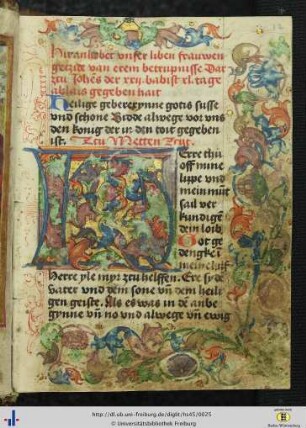 Hir anhebet unser liben frauwen
geczide van erem betrupnisse Dar
czu Johēs der xxij. babist xl. tage
ablais gegeben hait
Heilige gebererynne gotis susse
vnd schone Bidde alwege vor vns
den konig der in den toit gegeben
ist. Czu Metten Zcyt.
Erre thu
off mine
lippe vnd
mein mūt
sal ver
kundigē
dem loib
Got ge
dencke ī
mein hilff
Herre yle myr czu helffen. Ere sy dē
vater vnd dem sone vn̄ dem heili
gen geiste. Als es was in dē anbe
gynne vn̄ nv vnd alwege vn̄ ewig
http://dl.ub.uni-freiburg.de/diglit/hs45/0025
© Universitätsbibliothek Freiburg
Baden-Württemberg